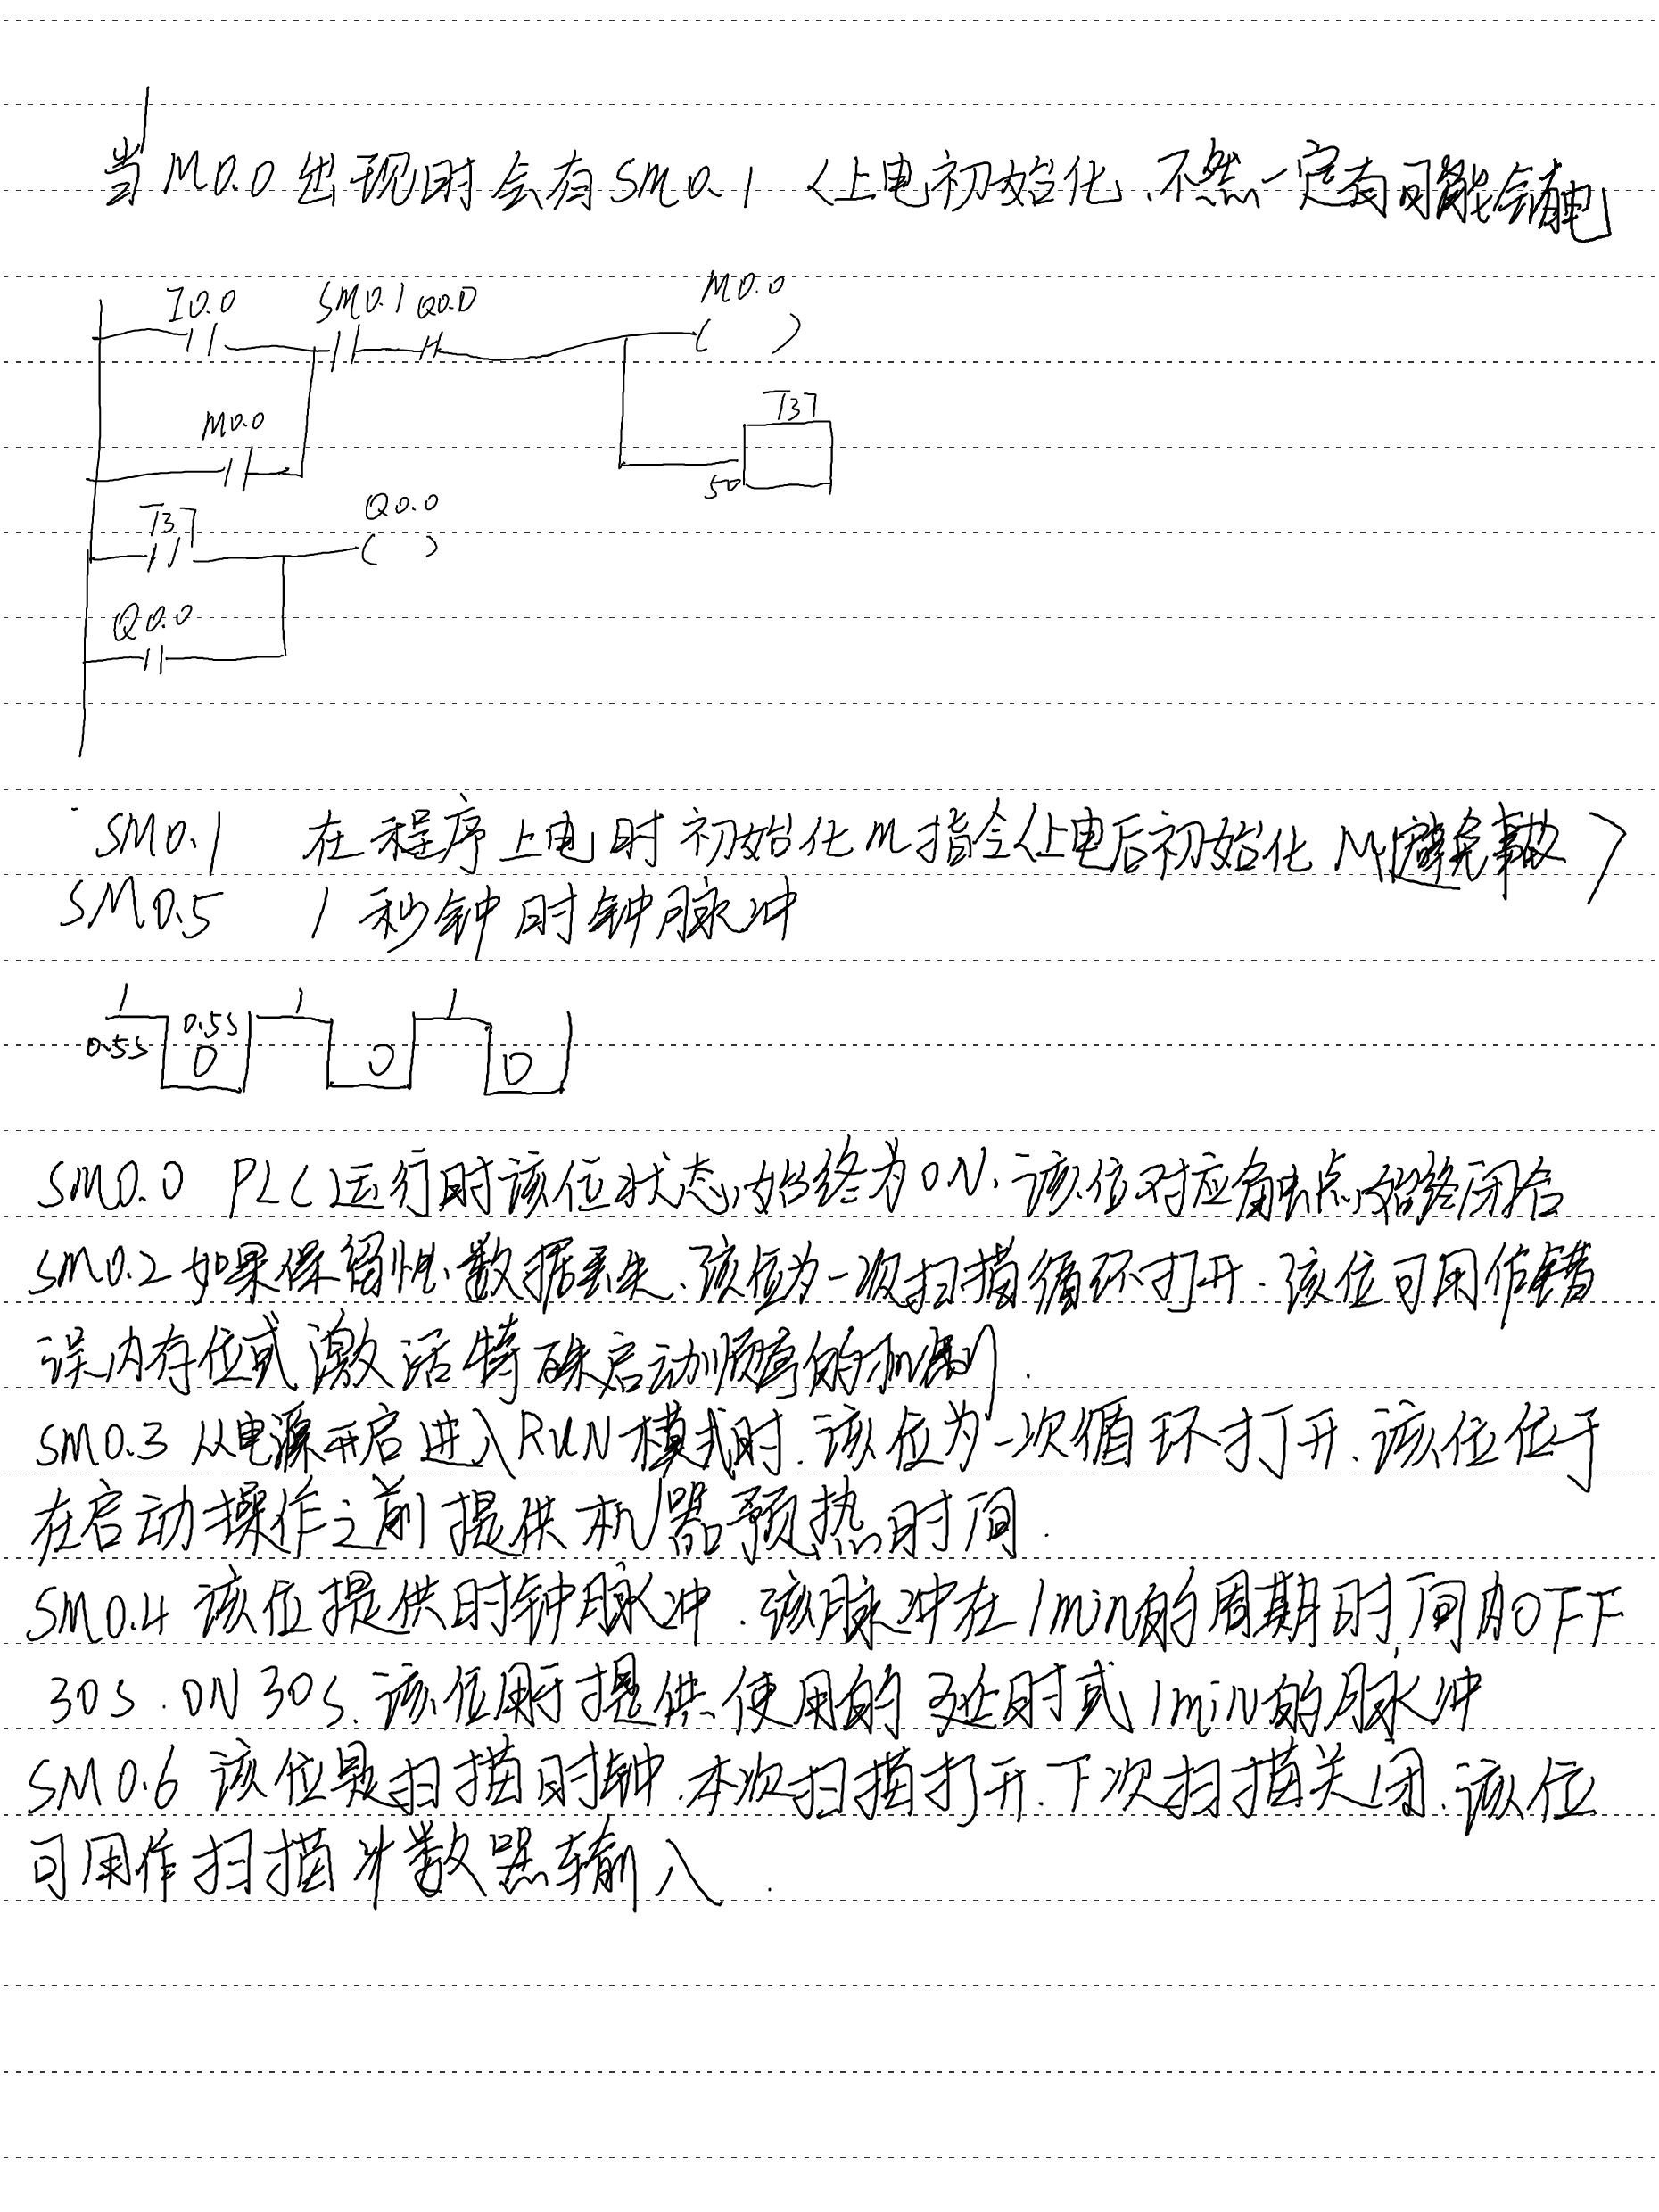 当M0.0出现时会有SM0.1(上电初始化、不然一定有可能会有电
I0.0 SM0.1 Q0.0 M0.0
M0.0 T37
50
T37 Q0.0
Q0.0
SM0.1 在程序上电时初始化M指令(上电后初始化M避免事故)
SM0.5 1秒钟时钟脉冲
1 0.5S 1 1
0.5S 0 0 0
SM0.0 PLC运行时该位状态始终为ON、该位对应触点始终闭合
SM0.2如果保留性数据丢失、该位为一次扫描循环打开.该位可用作错
误内存位或激活特殊启动顺序的机制.
SM0.3从电源开启进入RUN模式时.该位为一次循环打开、该位位于
在启动操作之前提供机器预热时间.
SM0.4该位提供时钟脉冲.该脉冲在1min的周期时间内OFF
30S.ON30S.该位用于提供使用的延时或1min的脉冲
SM0.6该位是扫描时钟.本次扫描打开.下次扫描关闭.该位
可用作扫描计数器输入.